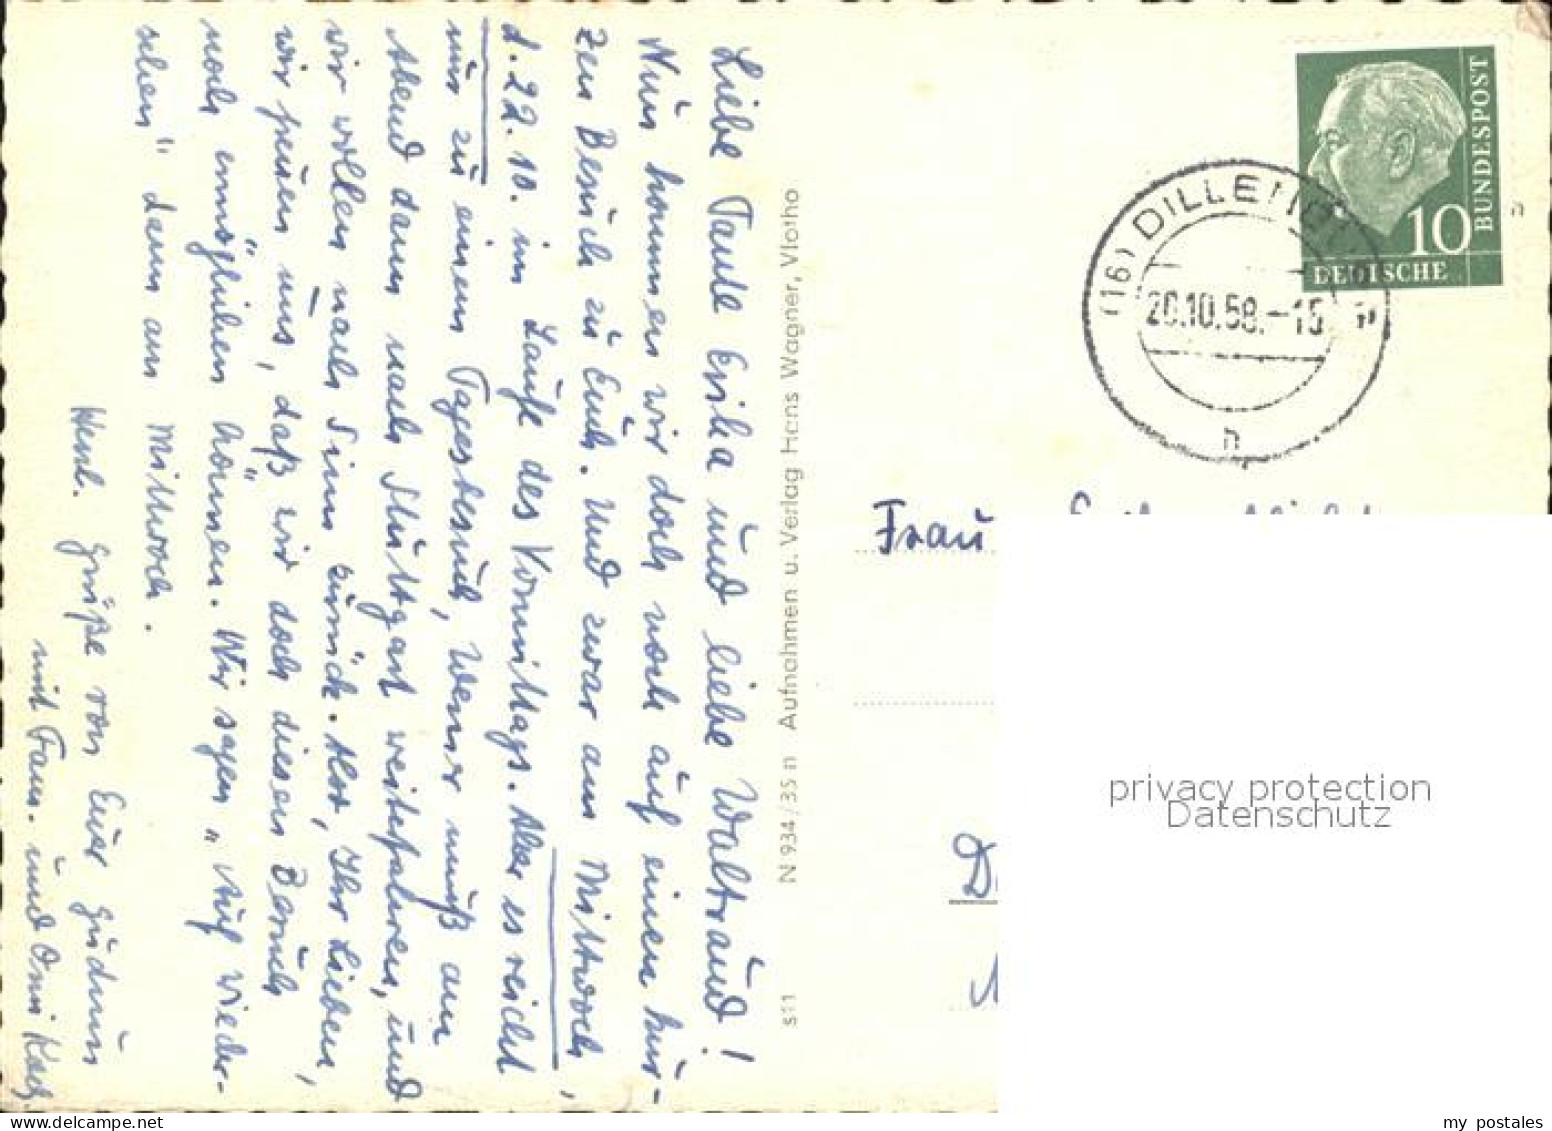 Liebe Tante Erika und liebe Waltraud!
Nun kommen wir doch noch auf einen kur-
zen Besuch zu Euch. Und zwar am Mittwoch,
d. 22. 10. im Laufe des Vormittags. Aber es reicht
nur zu einem Tagesbesuch, Werner muß am
Abend dann nach Stuttgart weiterfahren, und
wir wollen nach Sinn zurück. Also, Ihr Lieben,
wir freuen uns, daß wir doch diesen Besuch
noch ermöglichen können. Wir sagen „Auf Wieder-
sehen" dann am Mittwoch.
Herzl. Grüße von Euer Gudrun
mit Fam. und Omi
s11 N 934/35 n Aufnahmen u. Verlag Hans Wagner, Vlotho
DEUTSCHE BUNDESPOST
10
(16) DILLENBURG
20.10.58.-15
n
Frau
privacy protection
Datenschutz
my postales